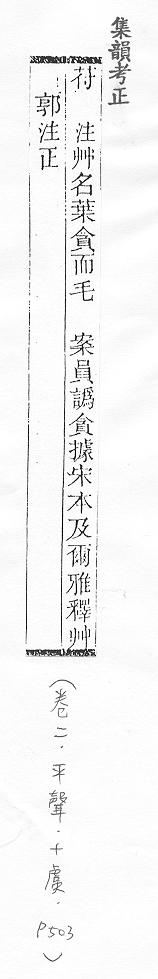 集韻考正
苻 注艸名葉貪而毛 案員譌貪據宋本及爾雅釋艸
郭注正
（卷二．平聲．十虞．P503）